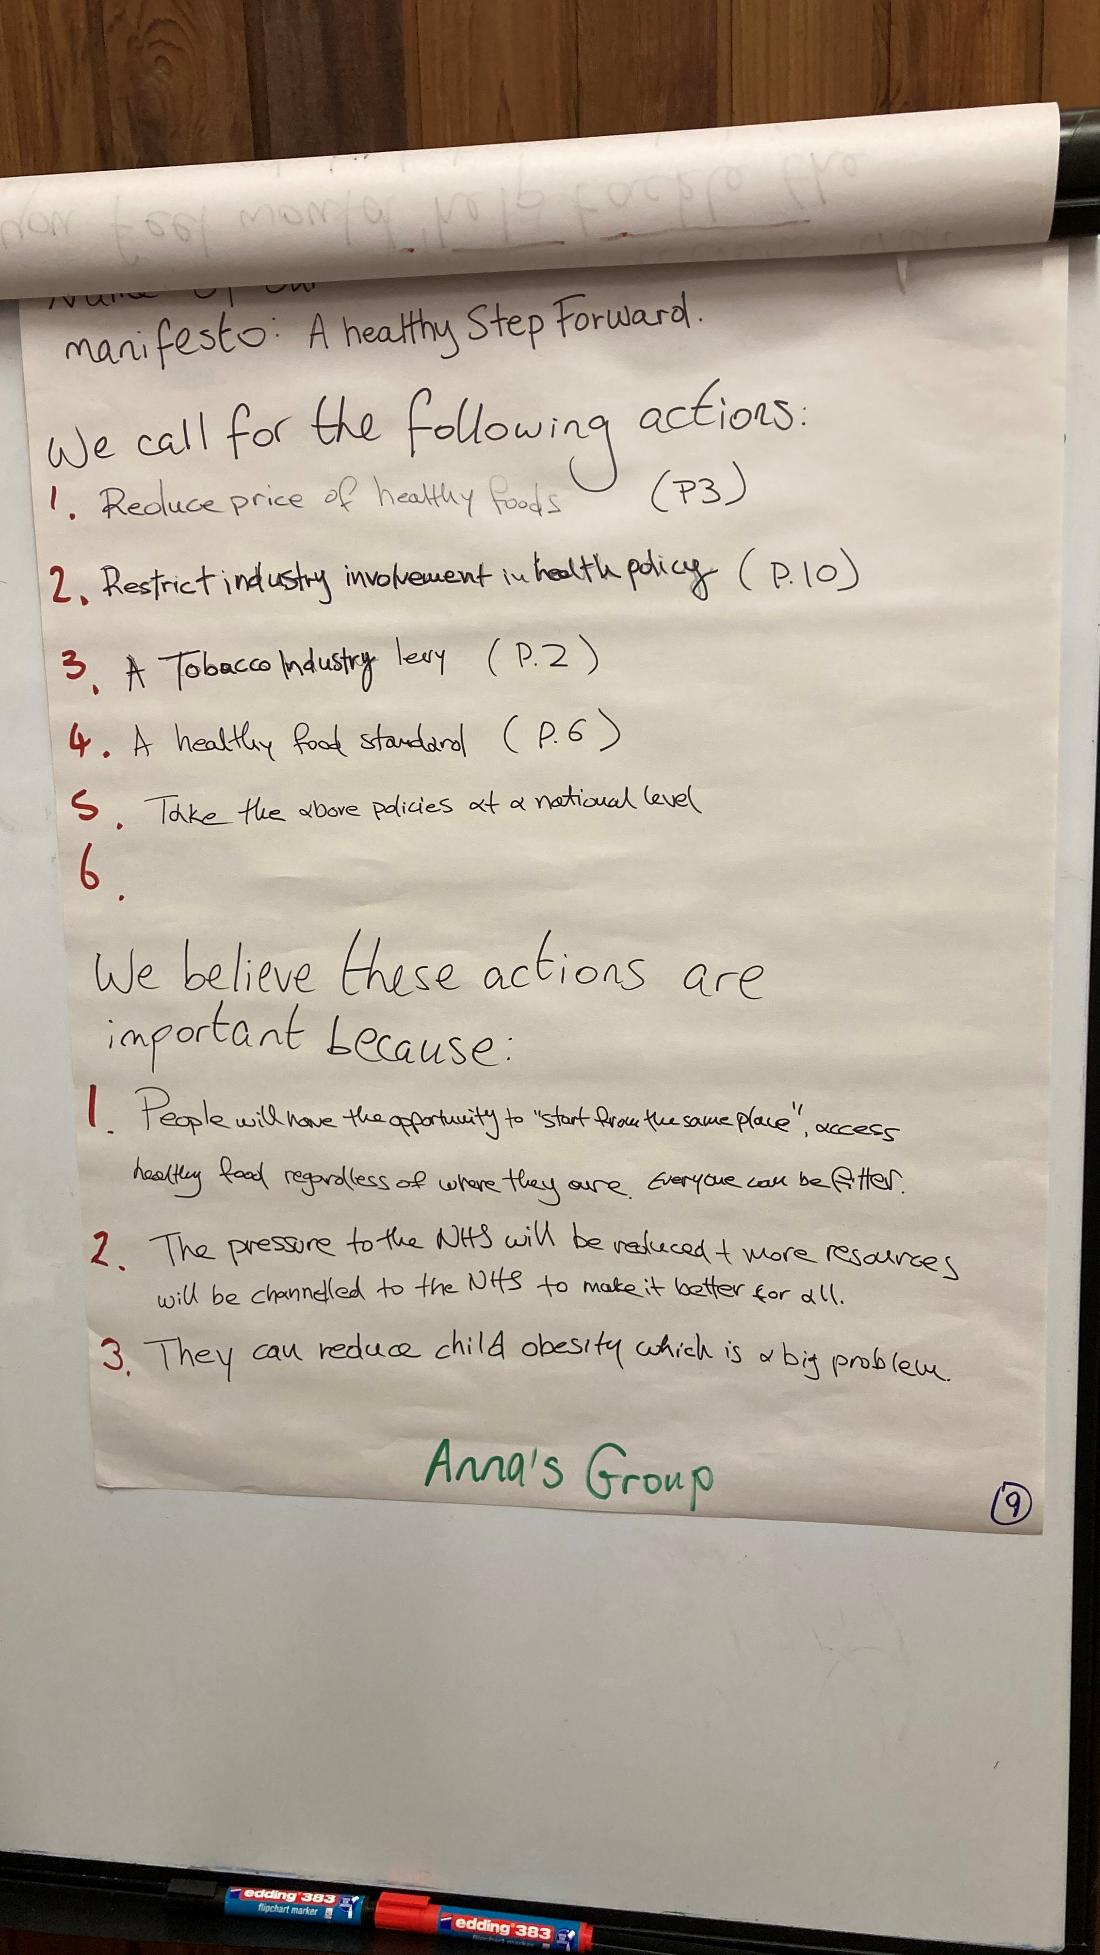 you feel would help tackle the
Name of our
manifesto: A healthy Step Forward.
We call for the following actions:
1. Reduce price of healthy foods (P3)
2. Restrict industry involvement in health policy (P.10)
3. A Tobacco Industry levy (P.2)
4. A healthy food standard (P.6)
5. Take the above policies at a national level
6.
We believe these actions are
important because:
1. People will have the opportunity to "start from the same place", access
healthy food regardless of where they are. Everyone can be fitter.
2. The pressure to the NHS will be reduced + more resources
will be channelled to the NHS to make it better for all.
3. They can reduce child obesity which is a big problem.
Anna's Group
9
edding 383
flipchart marker
edding 383
flipchart marker